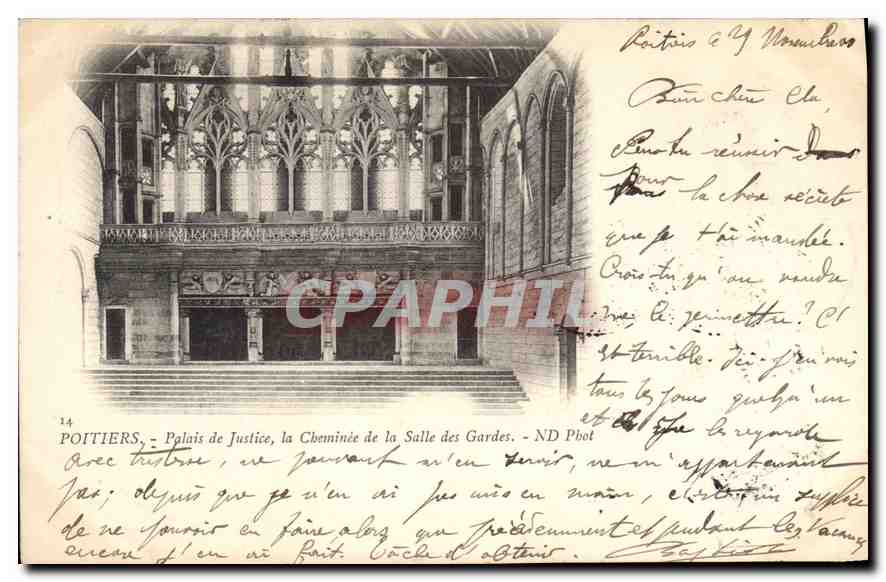 Poitiers le 29 Novembre 00
Bien chère Cla,
Penses-tu réussir
pour la chose secrète
que je t'ai mandée.
Crois-tu qu'on voudra
me le permettre? C'
est terrible. Ici j'en vois
tous les jours quelqu'un
et je les regarde
14
POITIERS. - Palais de Justice, la Cheminée de la Salle des Gardes. - ND Phot
CPAPHIL
avec tristesse, ne pouvant m'en servir, ne m'appartenant
pas; depuis que je n'en ai pas mis en main, c'est un supplice
de ne pouvoir en faire alors que précédemment et pendant les vacances
encore j'en ai fait. Tâche d'obtenir.
Baptiste